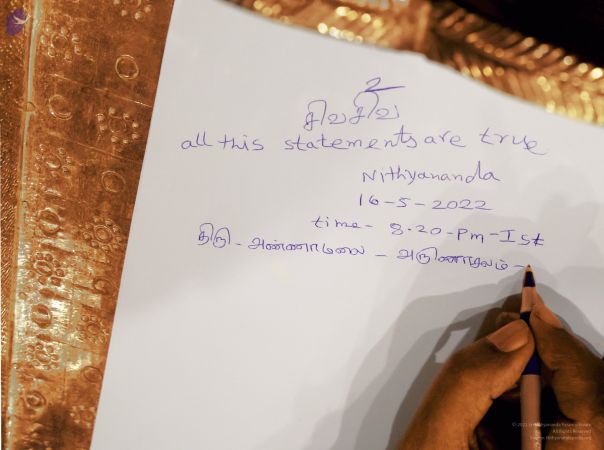 உ
சிவசிவ
all this statements are true
Nithyananda
16-5-2022
time - 8.20-Pm-Ist
திரு - அண்ணாமலை - அருணாசலம் -
All Rights Reserved